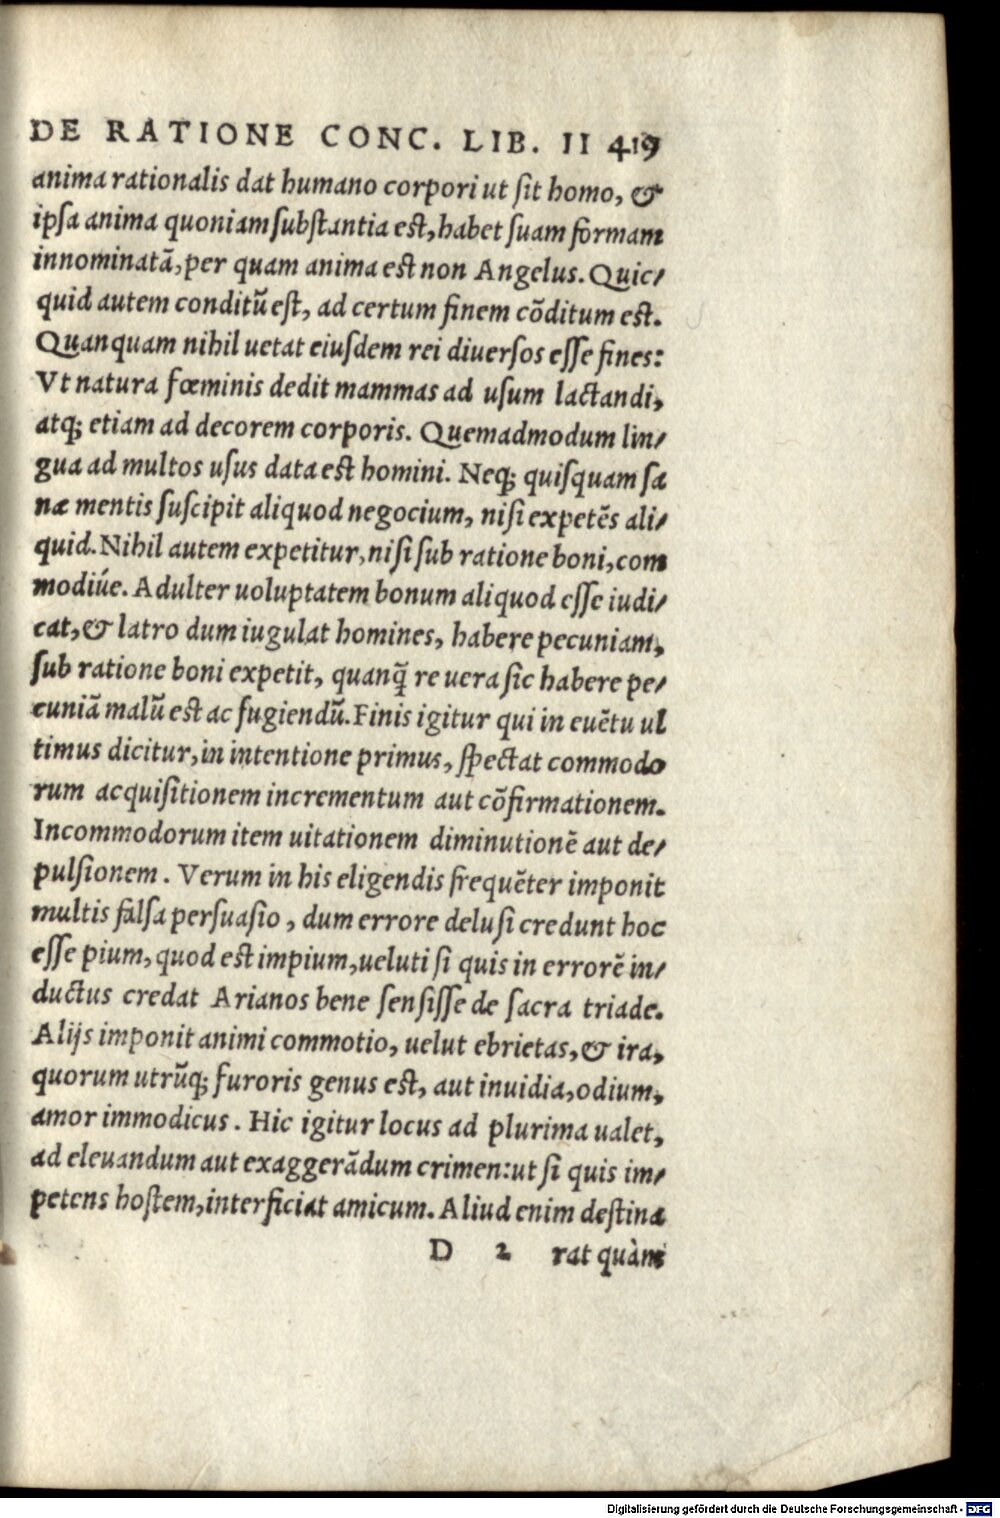 DE RATIONE CONC. LIB. II 419
anima rationalis dat humano corpori ut ſit homo, &
ipſa anima quoniam ſubſtantia eſt, habet ſuam formam
innominatā, per quam anima eſt non Angelus. Quic/
quid autem conditū eſt, ad certum finem cōditum eſt.
Quanquam nihil uetat eiuſdem rei diuerſos eſſe fines:
Vt natura fœminis dedit mammas ad uſum lactandi,
atq; etiam ad decorem corporis. Quemadmodum lin/
gua ad multos uſus data eſt homini. Neq; quiſquam ſa
næ mentis ſuſcipit aliquod negocium, niſi expetēs ali/
quid. Nihil autem expetitur, niſi ſub ratione boni, com
modiúe. Adulter uoluptatem bonum aliquod eſſe iudi/
cat, & latro dum iugulat homines, habere pecuniam,
ſub ratione boni expetit, quanq̃ re uera ſic habere pe/
cuniā malū eſt ac fugiendū. Finis igitur qui in euētu ul
timus dicitur, in intentione primus, ſpectat commodo
rum acquiſitionem incrementum aut cōfirmationem.
Incommodorum item uitationem diminutionē aut de/
pulſionem. Verum in his eligendis frequēter imponit
multis falſa perſuaſio, dum errore deluſi credunt hoc
eſſe pium, quod eſt impium, ueluti ſi quis in errorē in/
ductus credat Arianos bene ſenſiſſe de ſacra triade.
Alijs imponit animi commotio, uelut ebrietas, & ira,
quorum utrūq; furoris genus eſt, aut inuidia, odium,
amor immodicus. Hic igitur locus ad plurima ualet,
ad eleuandum aut exaggerādum crimen: ut ſi quis im/
petens hoſtem, interficiat amicum. Aliud enim deſtina
D 2 rat quàm
Digitalisierung gefördert durch die Deutsche Forschungsgemeinschaft - DFG